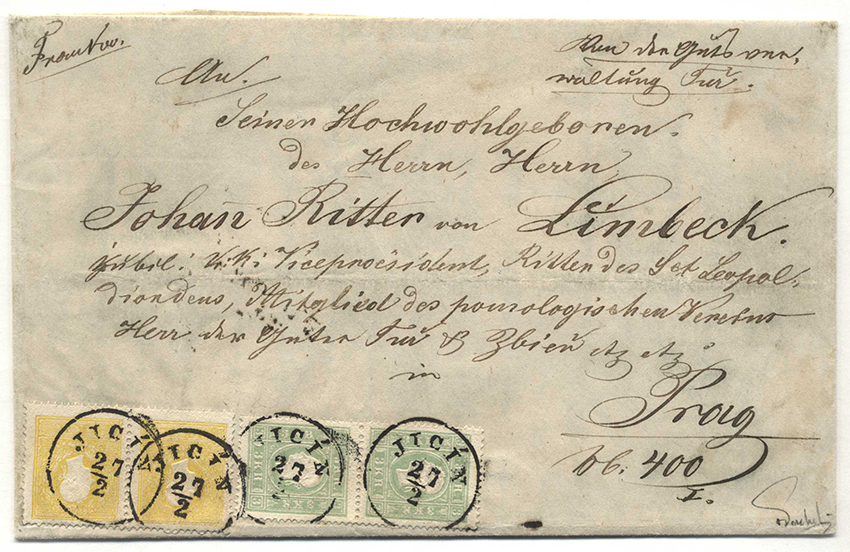 Franko.
Von der Gutsver-
waltung Tur.
An.
Seiner Hochwohlgeboren.
des Herrn, Herrn
Johan̄ Ritter von Limbeck.
jubil: k: k: Vicepräsident, Ritter des Set Leopol-
diordens, Mitglied des pomologischen Vereins
Herr der Güter Tur & Zbieř etz etz
in
Prag
No: 400
I.
JIČÍN
27
2
JIČÍN
27
2
JIČÍN
27
2
JIČÍN
27
2